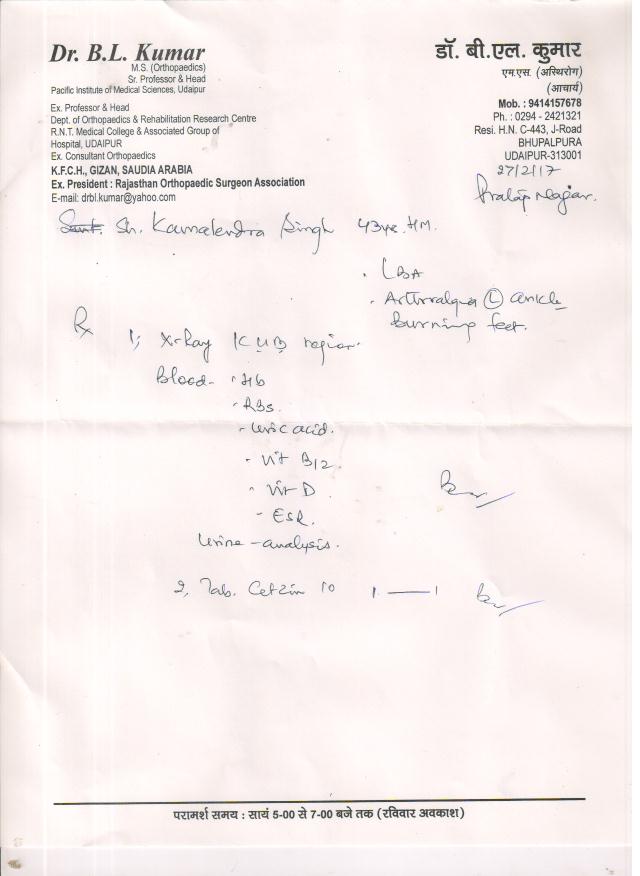 Dr. B.L. Kumar
M.S. (Orthopaedics)
Sr. Professor & Head
Pacific Institute of Medical Sciences, Udaipur
Ex. Professor & Head
Dept. of Orthopaedics & Rehabilitation Research Centre
R.N.T. Medical College & Associated Group of
Hospital, UDAIPUR
Ex. Consultant Orthopaedics
K.F.C.H., GIZAN, SAUDIA ARABIA
Ex. President : Rajasthan Orthopaedic Surgeon Association
E-mail: drbl.kumar@yahoo.com
डॉ. बी.एल. कुमार
एम.एस. (अस्थिरोग)
(आचार्य)
Mob. : 9414157678
Ph. : 0294 - 2421321
Resi. H.N. C-443, J-Road
BHUPALPURA
UDAIPUR-313001
27/2/17
Pratap Nagar.
Sh. Kamalendra Singh 43yr. HM.
. LBA
. Arthralgia Ⓛ ankle
burning feet.
Rx
1, X-Ray KUB region.
Blood - . Hb
. RBS.
- Uric acid.
- Vit B12.
- Vit D.
- ESR.
Urine - analysis.
2, Tab. Cetzin 10 1 —— 1
परामर्श समय : सायं 5-00 से 7-00 बजे तक (रविवार अवकाश)